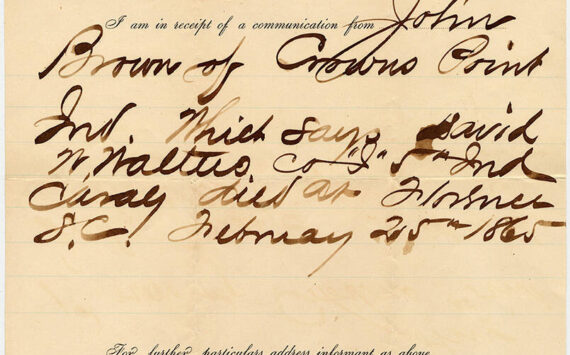 I am in receipt of a communication from John
Brown of Crowns Point
Ind. Which says David
W. Walters, Co "I" 5th Ind
Cavaly died at Florence
S.C. Februay 25th 1865
For further particulars address informant as above.